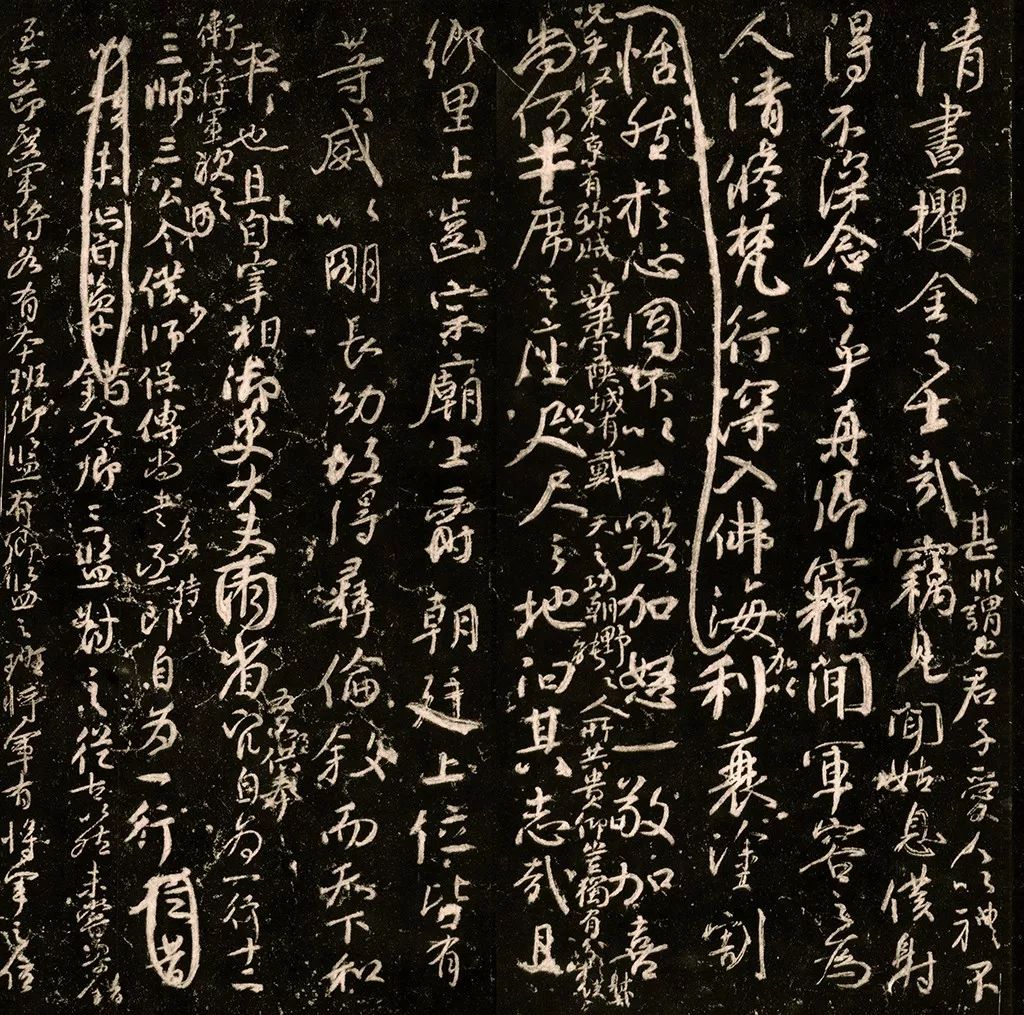 清晝攫金之士哉
甚非謂也君子愛人以禮不
竊見聞姑息僕射
得不深念之乎真卿竊聞軍容之為
人清修梵行深入佛海
加以
利衰塗割
恬然於心固不以一毀加怒一敬加喜
況乎收東京有殄賊之業守陝城有戴天之功朝野之人所共貴仰豈獨有分於僕射哉
尚何半席之座咫尺之地汩其志哉且
鄉里上齒宗廟上爵朝廷上位皆有
等威以明長幼故得彝倫敘而天下和
平也且上自宰相御史大夫兩省
五品供奉
官自為一行十二
衛大將軍次之
三師三公令僕少師保傅尚書左右丞侍郎自為一行
九卿三監對之從古以然未嘗參錯
至如節度軍將各有本班卿監有卿監之班將軍有將軍之位